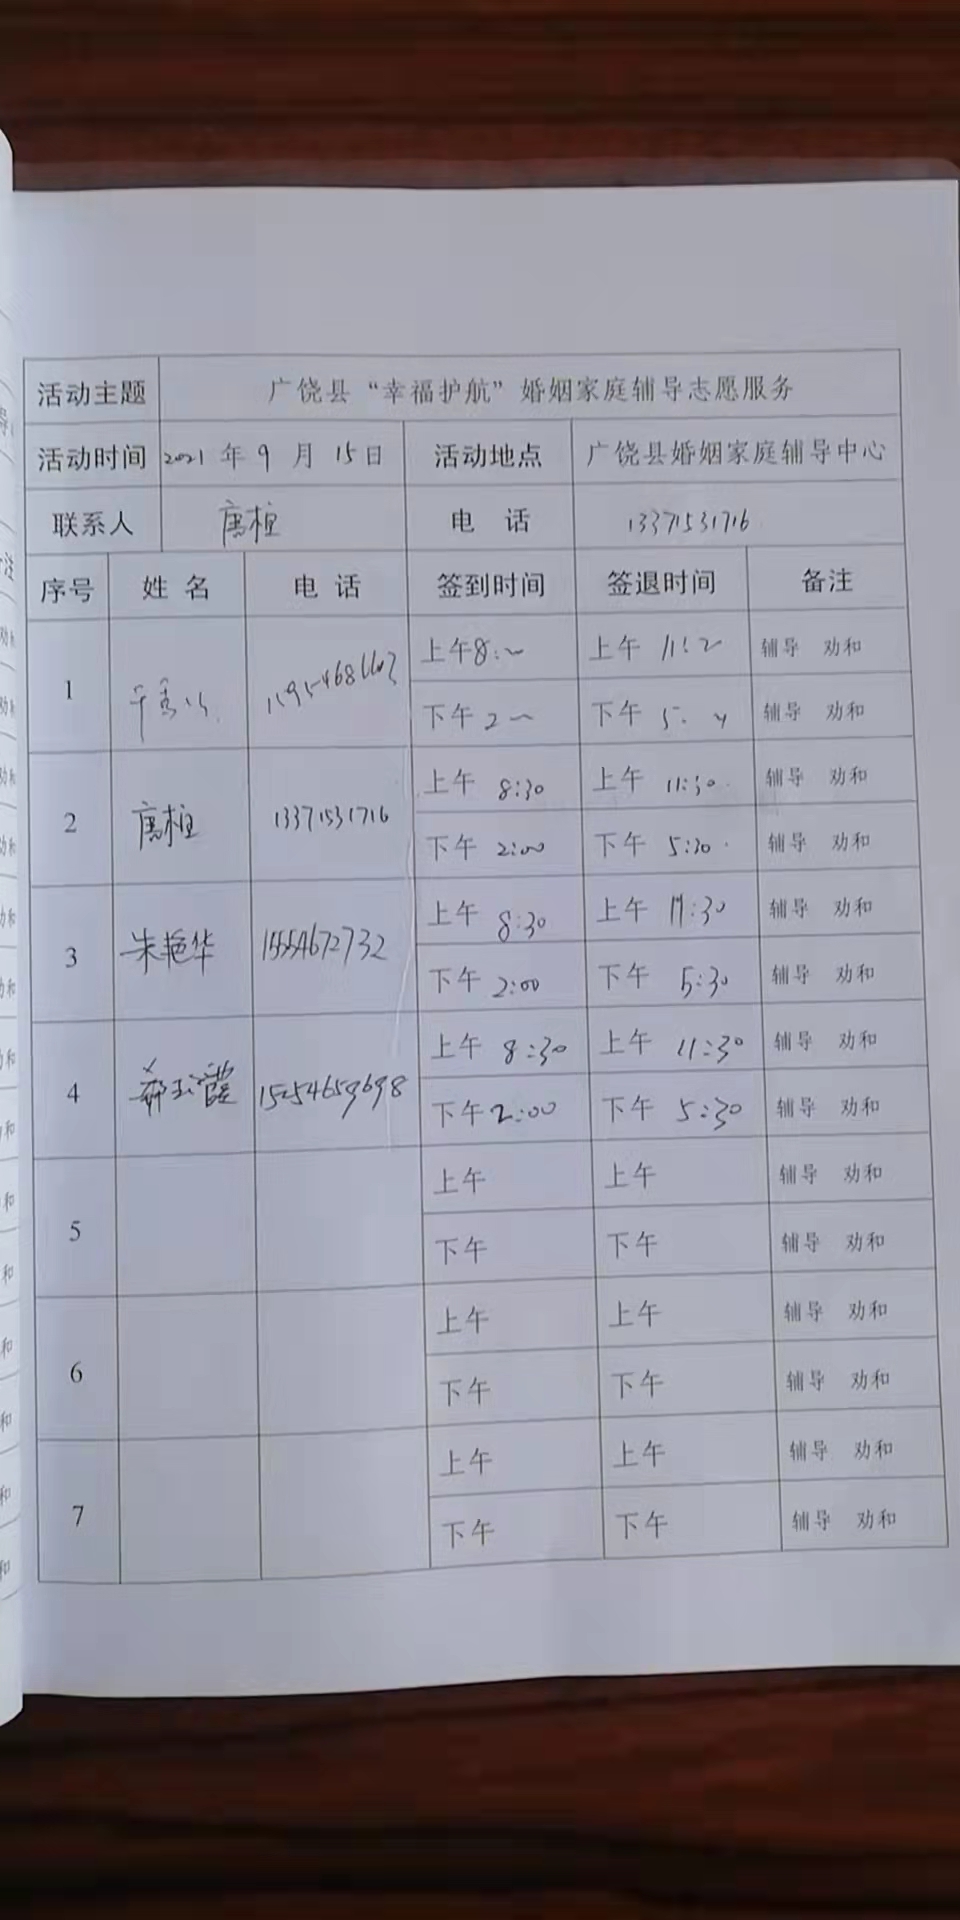 活动主题 广饶县“幸福护航”婚姻家庭辅导志愿服务
活动时间 2021 年 9 月 15 日 活动地点 广饶县婚姻家庭辅导中心
联系人 唐桓 电 话 13371531716
序号 姓 名 电 话 签到时间 签退时间 备注
1 上午 8: 上午 11: 辅导 劝和
下午 2 下午 5: 辅导 劝和
2 唐桓 13371531716 上午 8:30 上午 11:30 辅导 劝和
下午 2:00 下午 5:30 辅导 劝和
3 朱艳华 15554672732 上午 8:30 上午 11:30 辅导 劝和
下午 2:00 下午 5:30 辅导 劝和
4 郝玉霞 15254659698 上午 8:30 上午 11:30 辅导 劝和
下午 2:00 下午 5:30 辅导 劝和
5 上午 上午 辅导 劝和
下午 下午 辅导 劝和
6 上午 上午 辅导 劝和
下午 下午 辅导 劝和
7 上午 上午 辅导 劝和
下午 下午 辅导 劝和